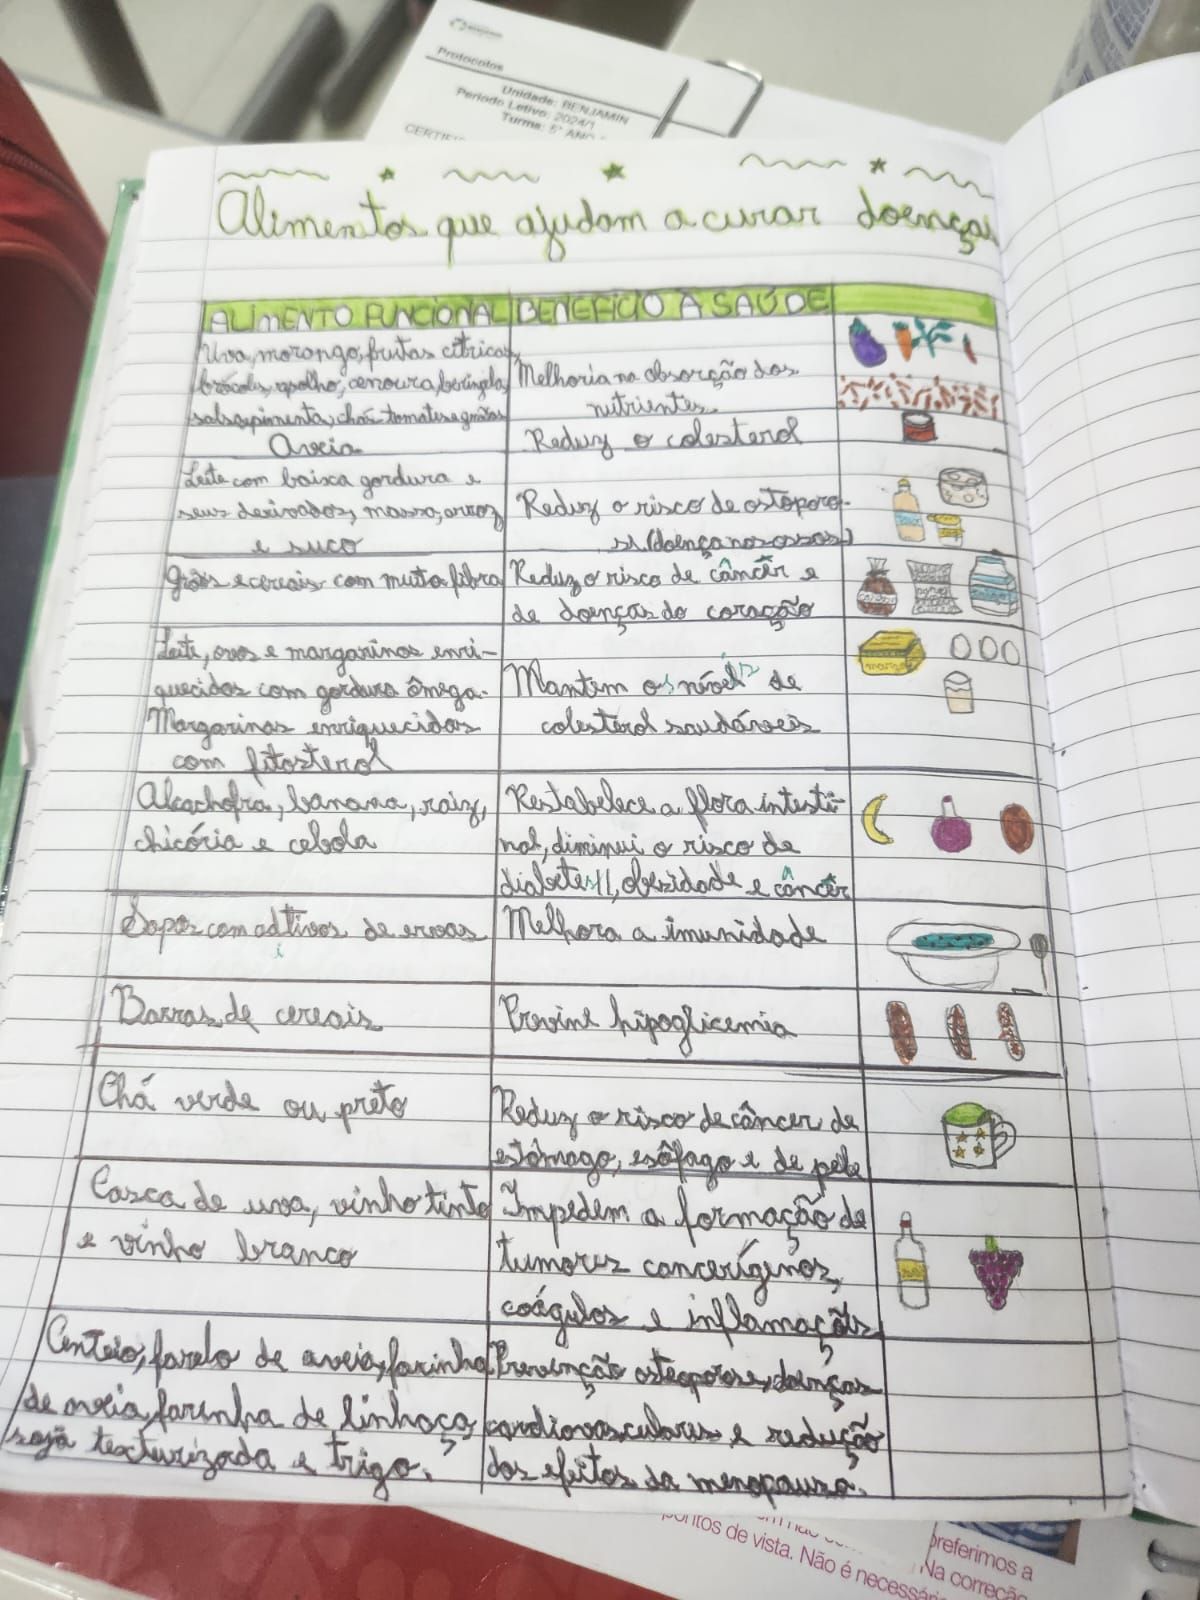 Protocolos
Unidade: BENJAMIN
Período Letivo: 2024/1
Turma: 5° ANO
Alimentos que ajudam a curar doenças
ALIMENTO FUNCIONAL BENEFÍCIO À SAÚDE
Uva, morango, frutas cítricas,
brócolis, repolho, cenoura, berinjela,
salsa, pimenta, chá, tomates e grãos
Melhoria na absorção dos
nutrientes.
Aveia
Reduz o colesterol
Leite com baixa gordura e
seus derivados, massa, arroz
e suco
Reduz o risco de ostoporo-
si. (doença nos ossos)
Grãos e cereais com muita fibra
Reduz o risco de câncêr e
de doenças do coração
Leite, ovos e margarinas enri-
quecidos com gordura ômega.
Margarinas enriquecidas
com fitosterol
Mantem os níveis de
colesterol saudáveis
Alcachofra, banana, raiz,
chicória e cebola
Restabelece a flora intesti-
nal, diminui o risco de
diabetes II, obezidade e câncêr
Sopas com aditivos de ervas
Melhora a imunidade
Barras de cereais
Previne hipoglicemia
Chá verde ou preto
Reduz o risco de câncer de
estômago, esôfago e de pele
Casca de uva, vinho tinto
e vinho branco
Impedem a formação de
tumores cancerígenos,
coágulos e inflamações
Centeio, farelo de aveia, farinha
de aveia, farinha de linhaça,
soja texturizada e trigo.
Prevenção osteoporose, doenças
cardiovasculares e redução
dos efeitos da menopausa.
pontos de vista. Não é necessári
preferimos a
Na correção